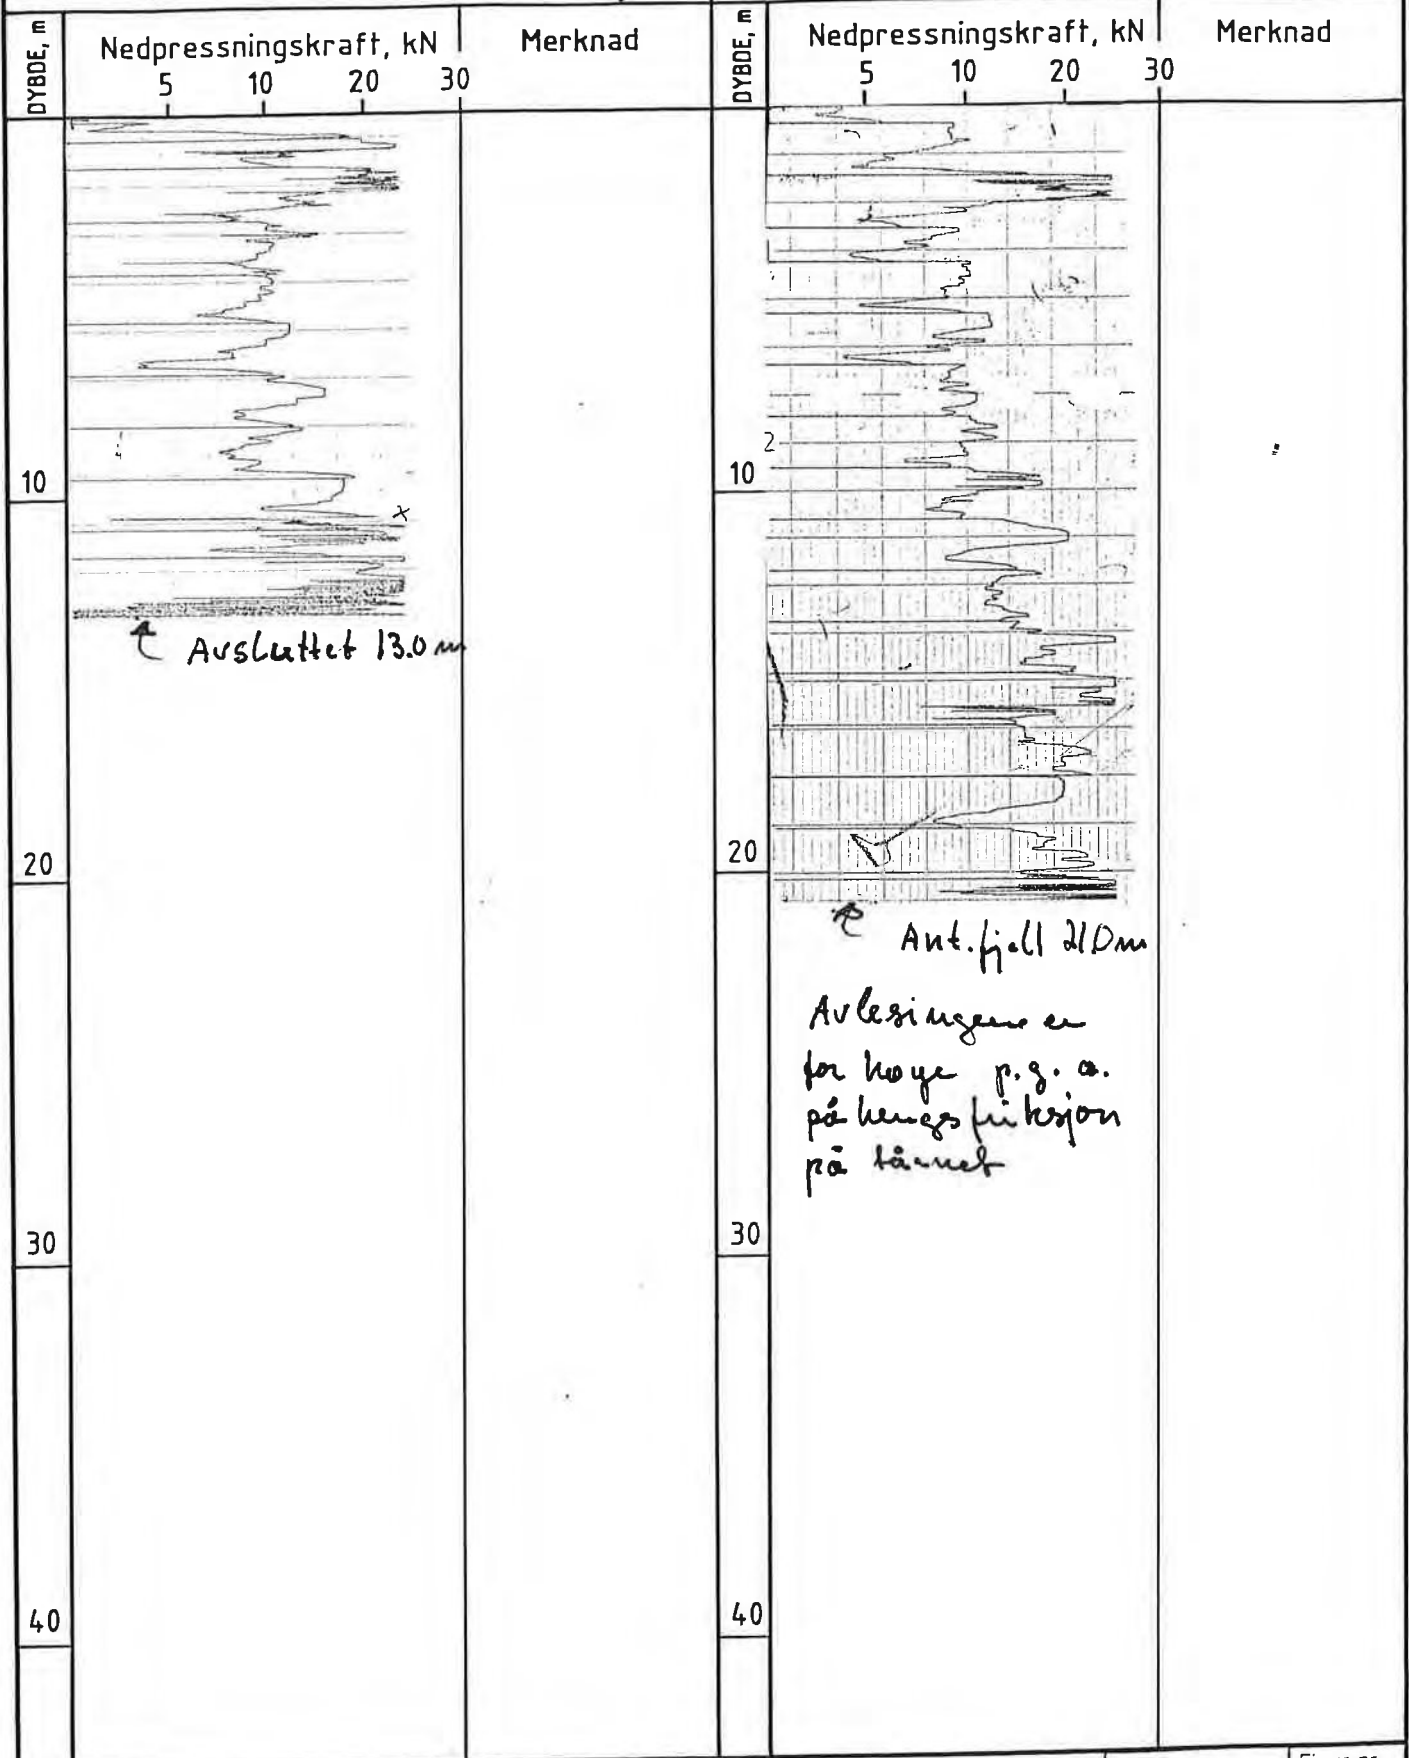 DYBDE, m
Nedpressningskraft, kN
Merknad
5 10 20 30
10
Avsluttet 13.0 m
20
30
40
DYBDE, m
Nedpressningskraft, kN
Merknad
5 10 20 30
2
10
20
Ant. fjell 21.0 m
Avlesingene er
for høye p.g.a.
påhengsfriksjon
på tårnet
30
40